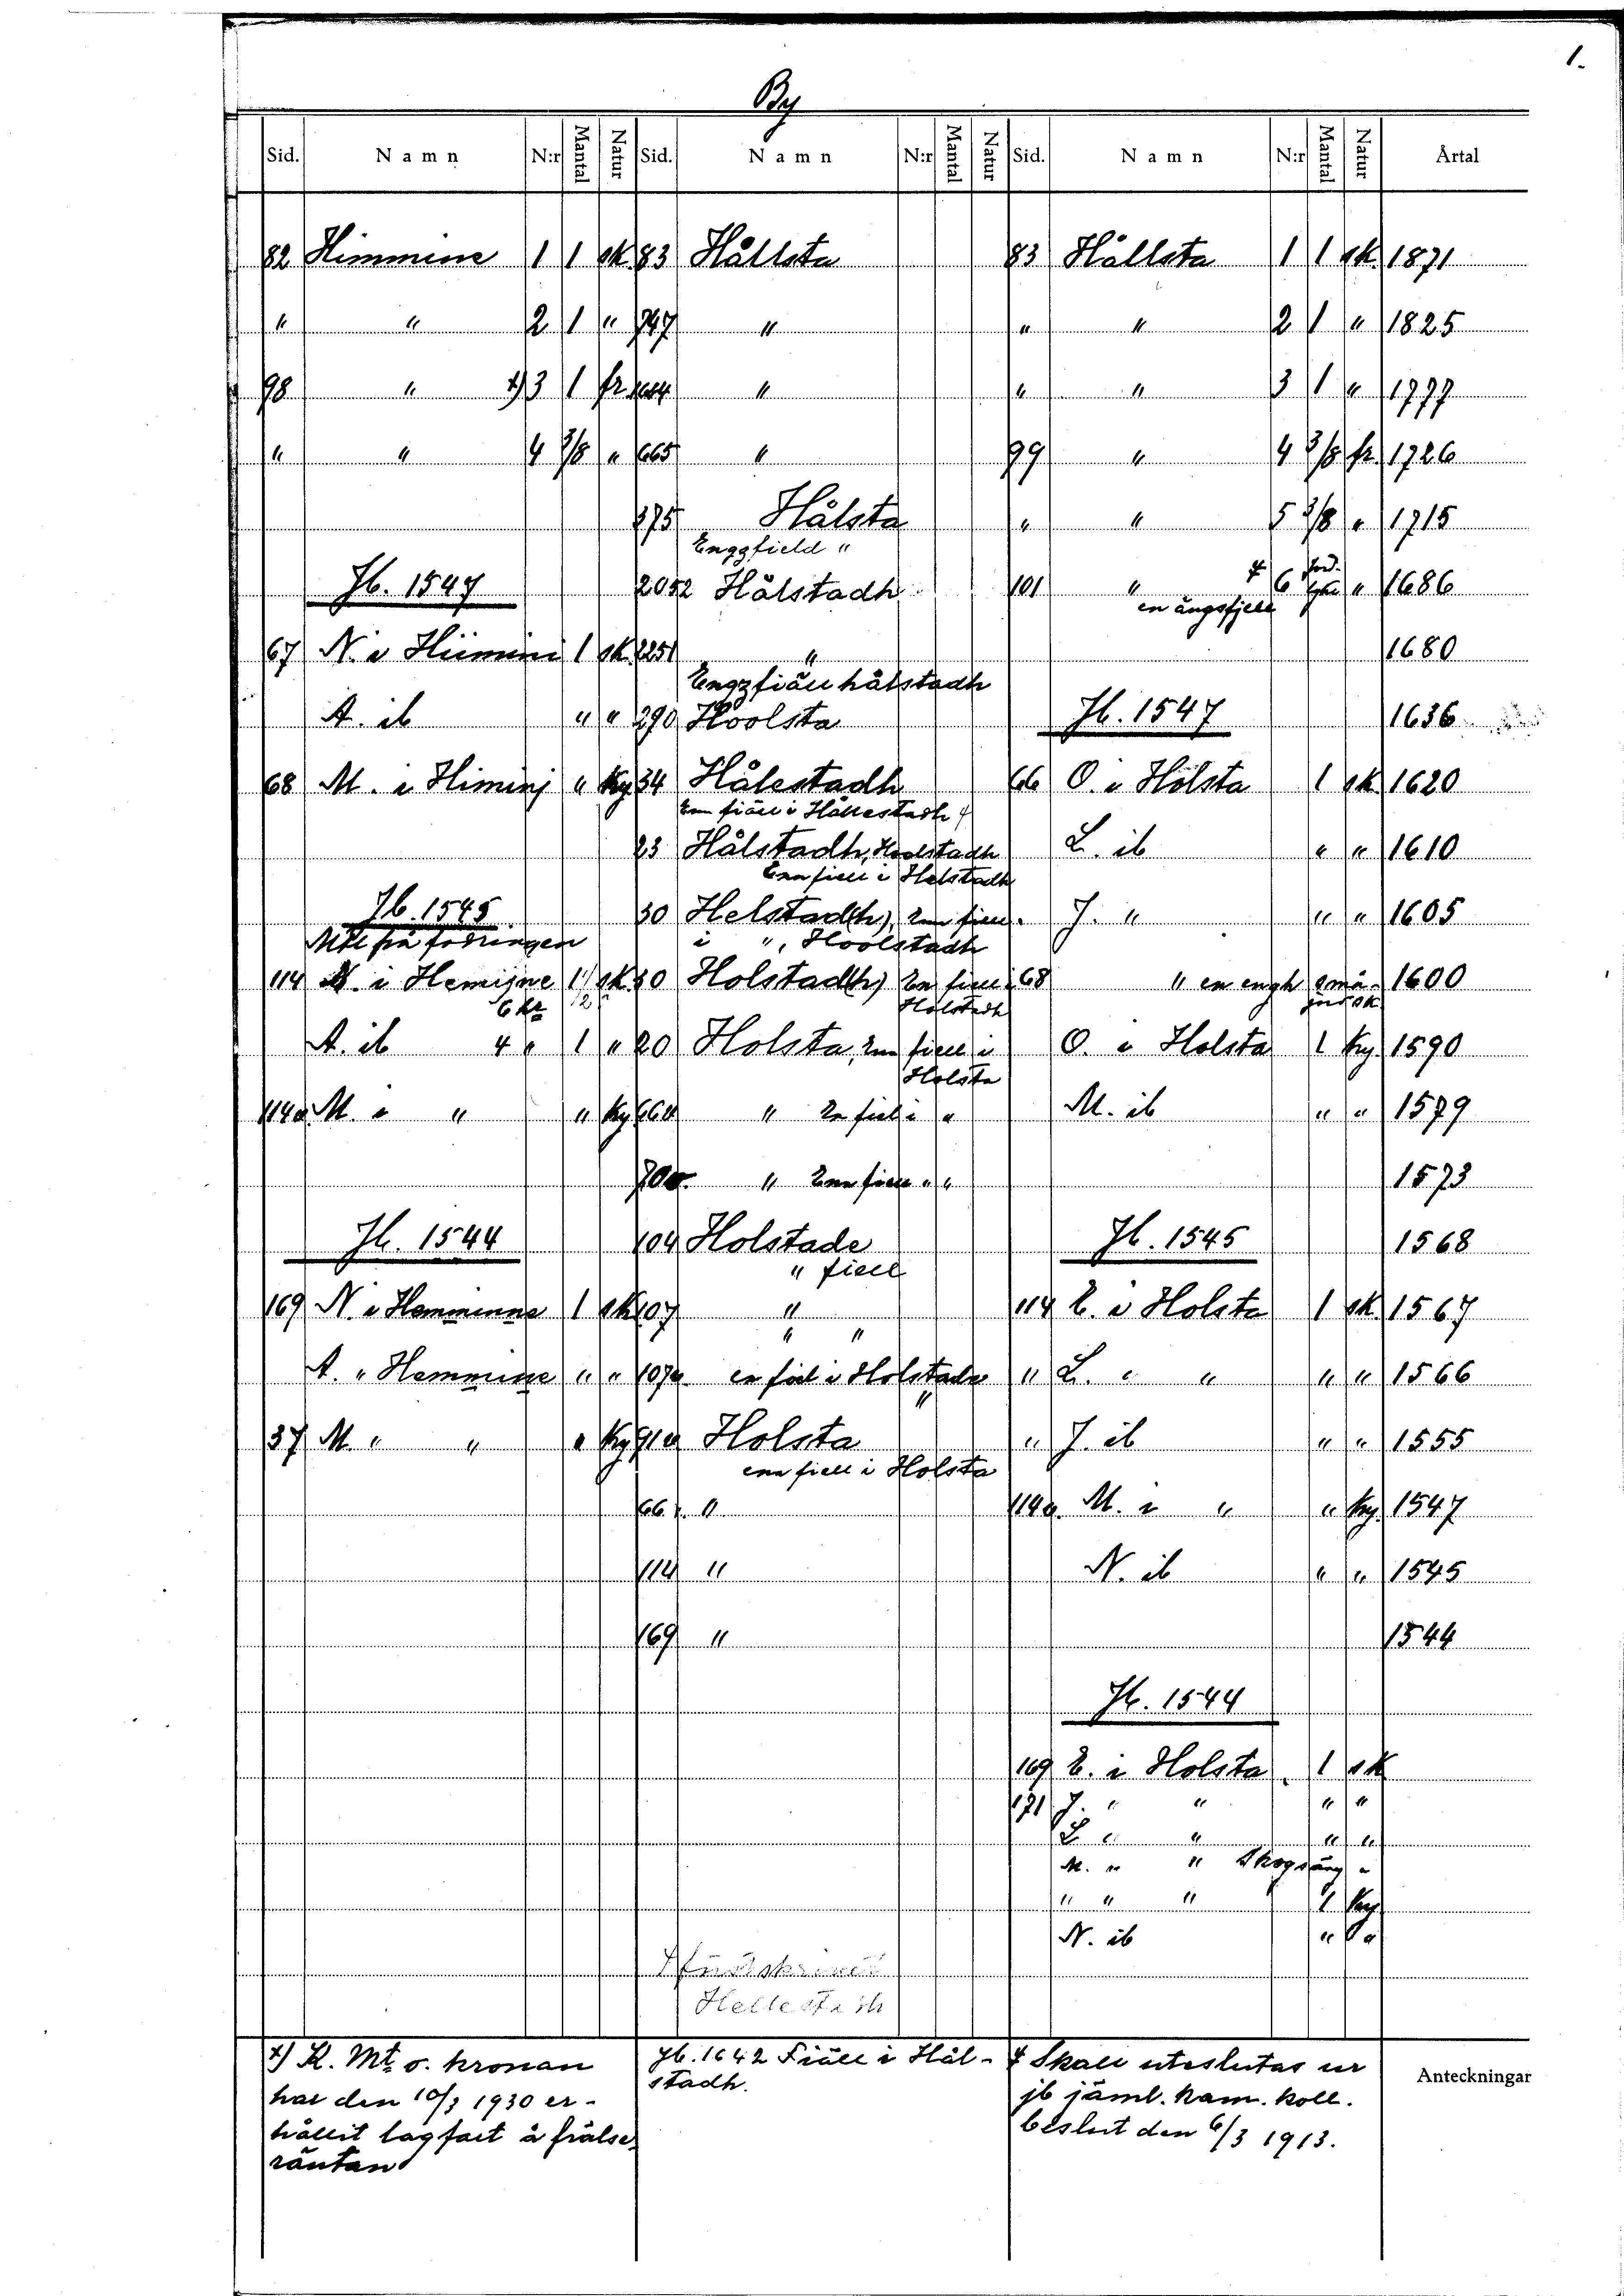 1.
By
Sid. Namn N:r Mantal Natur Sid. Namn N:r Mantal Natur Sid. Namn N:r Mantal Natur Årtal
82 Himmene 1 1 sk. 83 Hållsta 83 Hållsta 1 1 sk. 1871
" " 2 1 " 747 " " " 2 1 " 1825
98 " x) 3 1 fr. " " " 3 1 " 1777
" " 4 3/8 " 665 " 99 " 4 3/8 fr. 1726
375 Hålsta " " 5 3/8 " 1715
Enggfield "
Jb. 1547 2052 Hålstadh 101 " 6 " 1686
en ängsfjell
67 N. i Hiimini 1 sk. 2251 " 1680
Engzfiäll hålstadh
A. ib " " 290 Hoolsta Jb. 1547 1636
68 M. i Himinj " Ky 34 Hålestadh 66 O. i Hölsta 1 sk. 1620
Een fiäll i Hållestadh
23 Hålstadh, Hoolstadh L. ib " " 1610
Enn fiell i Holstadh
Jb. 1545 30 Helstad(h), Enn fiell J. " " " 1605
Mtl från fodringen i ", Hoolstadh
114 N. i Hemijne 1 1/2 sk. 30 Holstad(h) En fiell i 68 " en engh sk 1600
6 kr Holstadh
A. ib 4 " 1 " 20 Holsta, Enn fiell i O. i Holsta 1 Ky. 1590
Holsta
114a M. i " " Ky 66a " En fiel i " M. ib " " 1579
70a " Enn fiell " " 1573
Jb. 1544 104 Holstade Jb. 1545 1568
" fiell
169 N. i Hemmenne 1 sk 107 " 114 E. i Holsta 1 sk. 1567
" "
A. " Hemmine " " 107a en fiel i Holstade " L. " " " " 1566
"
37 M. " " " Ky 91a Holsta " J. ib " " 1555
enn fiell i Holsta
66 " 114a. M. i " " Ky. 1547
114 " N. ib " " 1545
169 " 1544
Jb. 1544
169 E. i Holsta 1 sk
171 J. " " " "
L " " " "
M. " " Skogsäng "
" " " 1 Ky
N. ib " "
Hellestadh
x) K. Mt o. kronan
har den 10/3 1930 er-
hållit lagfart å frälse
räntan
Jb. 1642 Fiäll i Hål-
stadh.
Skall uteslutas ur
jb jäml. kam. koll.
beslut den 6/3 1913.
Anteckningar